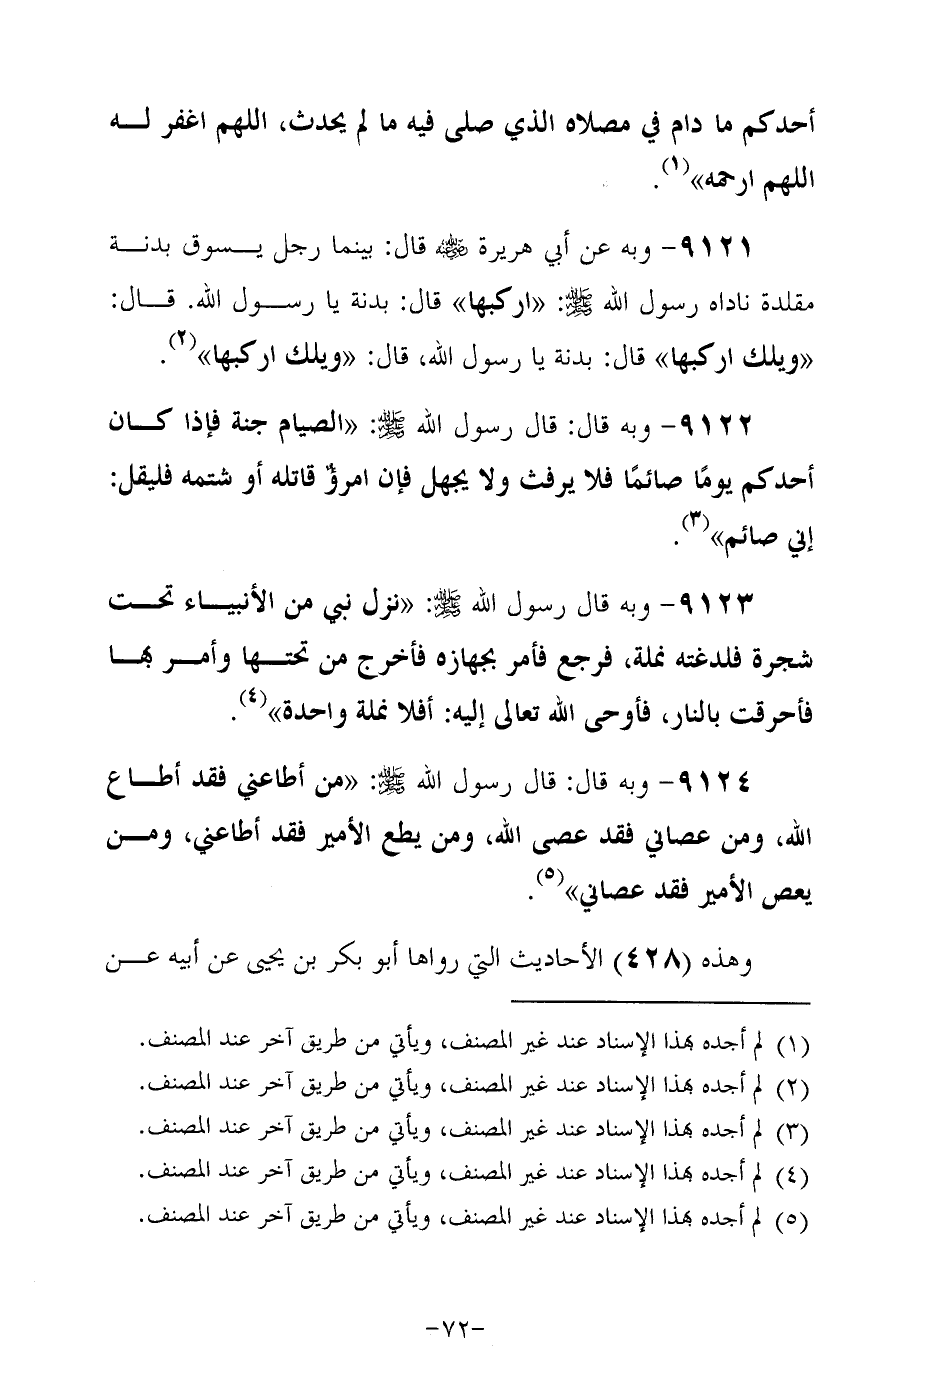 أحدكم ما دام في مصلاه الذي صلى فيه ما لم يحدث، اللهم اغفر لـــه
اللهم ارحمه»(١).
٩١٢١- وبه عن أبي هريرة ﵁ قال: بينما رجل يـــسوق بدنـــة
مقلدة ناداه رسول الله ﷺ: «اركبها» قال: بدنة يا رســـول الله. قـــال:
«ويلك اركبها» قال: بدنة يا رسول الله، قال: «ويلك اركبها»(٢).
٩١٢٢- وبه قال: قال رسول الله ﷺ: «الصيام جنة فإذا كـــان
أحدكم يومًا صائمًا فلا يرفث ولا يجهل فإن امرؤٌ قاتله أو شتمه فليقل:
إني صائم»(٣).
٩١٢٣- وبه قال رسول الله ﷺ: «نزل نبي من الأنبيـــاء تحـــت
شجرة فلدغته نملة، فرجع فأمر بجهازه فأخرج من تحتـــها وأمـــر بهـــا
فأحرقت بالنار، فأوحى الله تعالى إليه: أفلا نملة واحدة»(٤).
٩١٢٤- وبه قال: قال رسول الله ﷺ: «من أطاعني فقد أطـــاع
الله، ومن عصاني فقد عصى الله، ومن يطع الأمير فقد أطاعني، ومـــن
يعص الأمير فقد عصاني»(٥).
وهذه (٤٢٨) الأحاديث التي رواها أبو بكر بن يحيى عن أبيه عـــن
(١) لم أجده بهذا الإسناد عند غير المصنف، ويأتي من طريق آخر عند المصنف.
(٢) لم أجده بهذا الإسناد عند غير المصنف، ويأتي من طريق آخر عند المصنف.
(٣) لم أجده بهذا الإسناد عند غير المصنف، ويأتي من طريق آخر عند المصنف.
(٤) لم أجده بهذا الإسناد عند غير المصنف، ويأتي من طريق آخر عند المصنف.
(٥) لم أجده بهذا الإسناد عند غير المصنف، ويأتي من طريق آخر عند المصنف.
-٧٢-